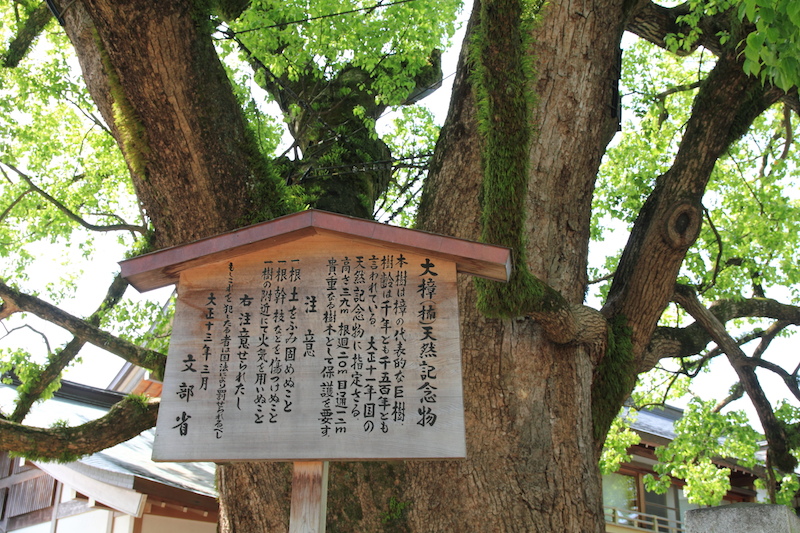 大樟 天然記念物
本樹は樟の代表的な巨樹、
樹齢は千年とも千五百年とも
言われている。大正十一年国の
天然記念物に指定さる。
高さ三九m 根廻二〇m 目通一二m
貴重な樹木として保護を要す。
注意
一根土をふみ固めぬこと
一根幹枝などを傷つけぬこと
一樹の附近にて火気を用いぬこと
右注意せられたし
もしこれを犯したる者は国法により罰せらるべし
大正十三年三月
文部省